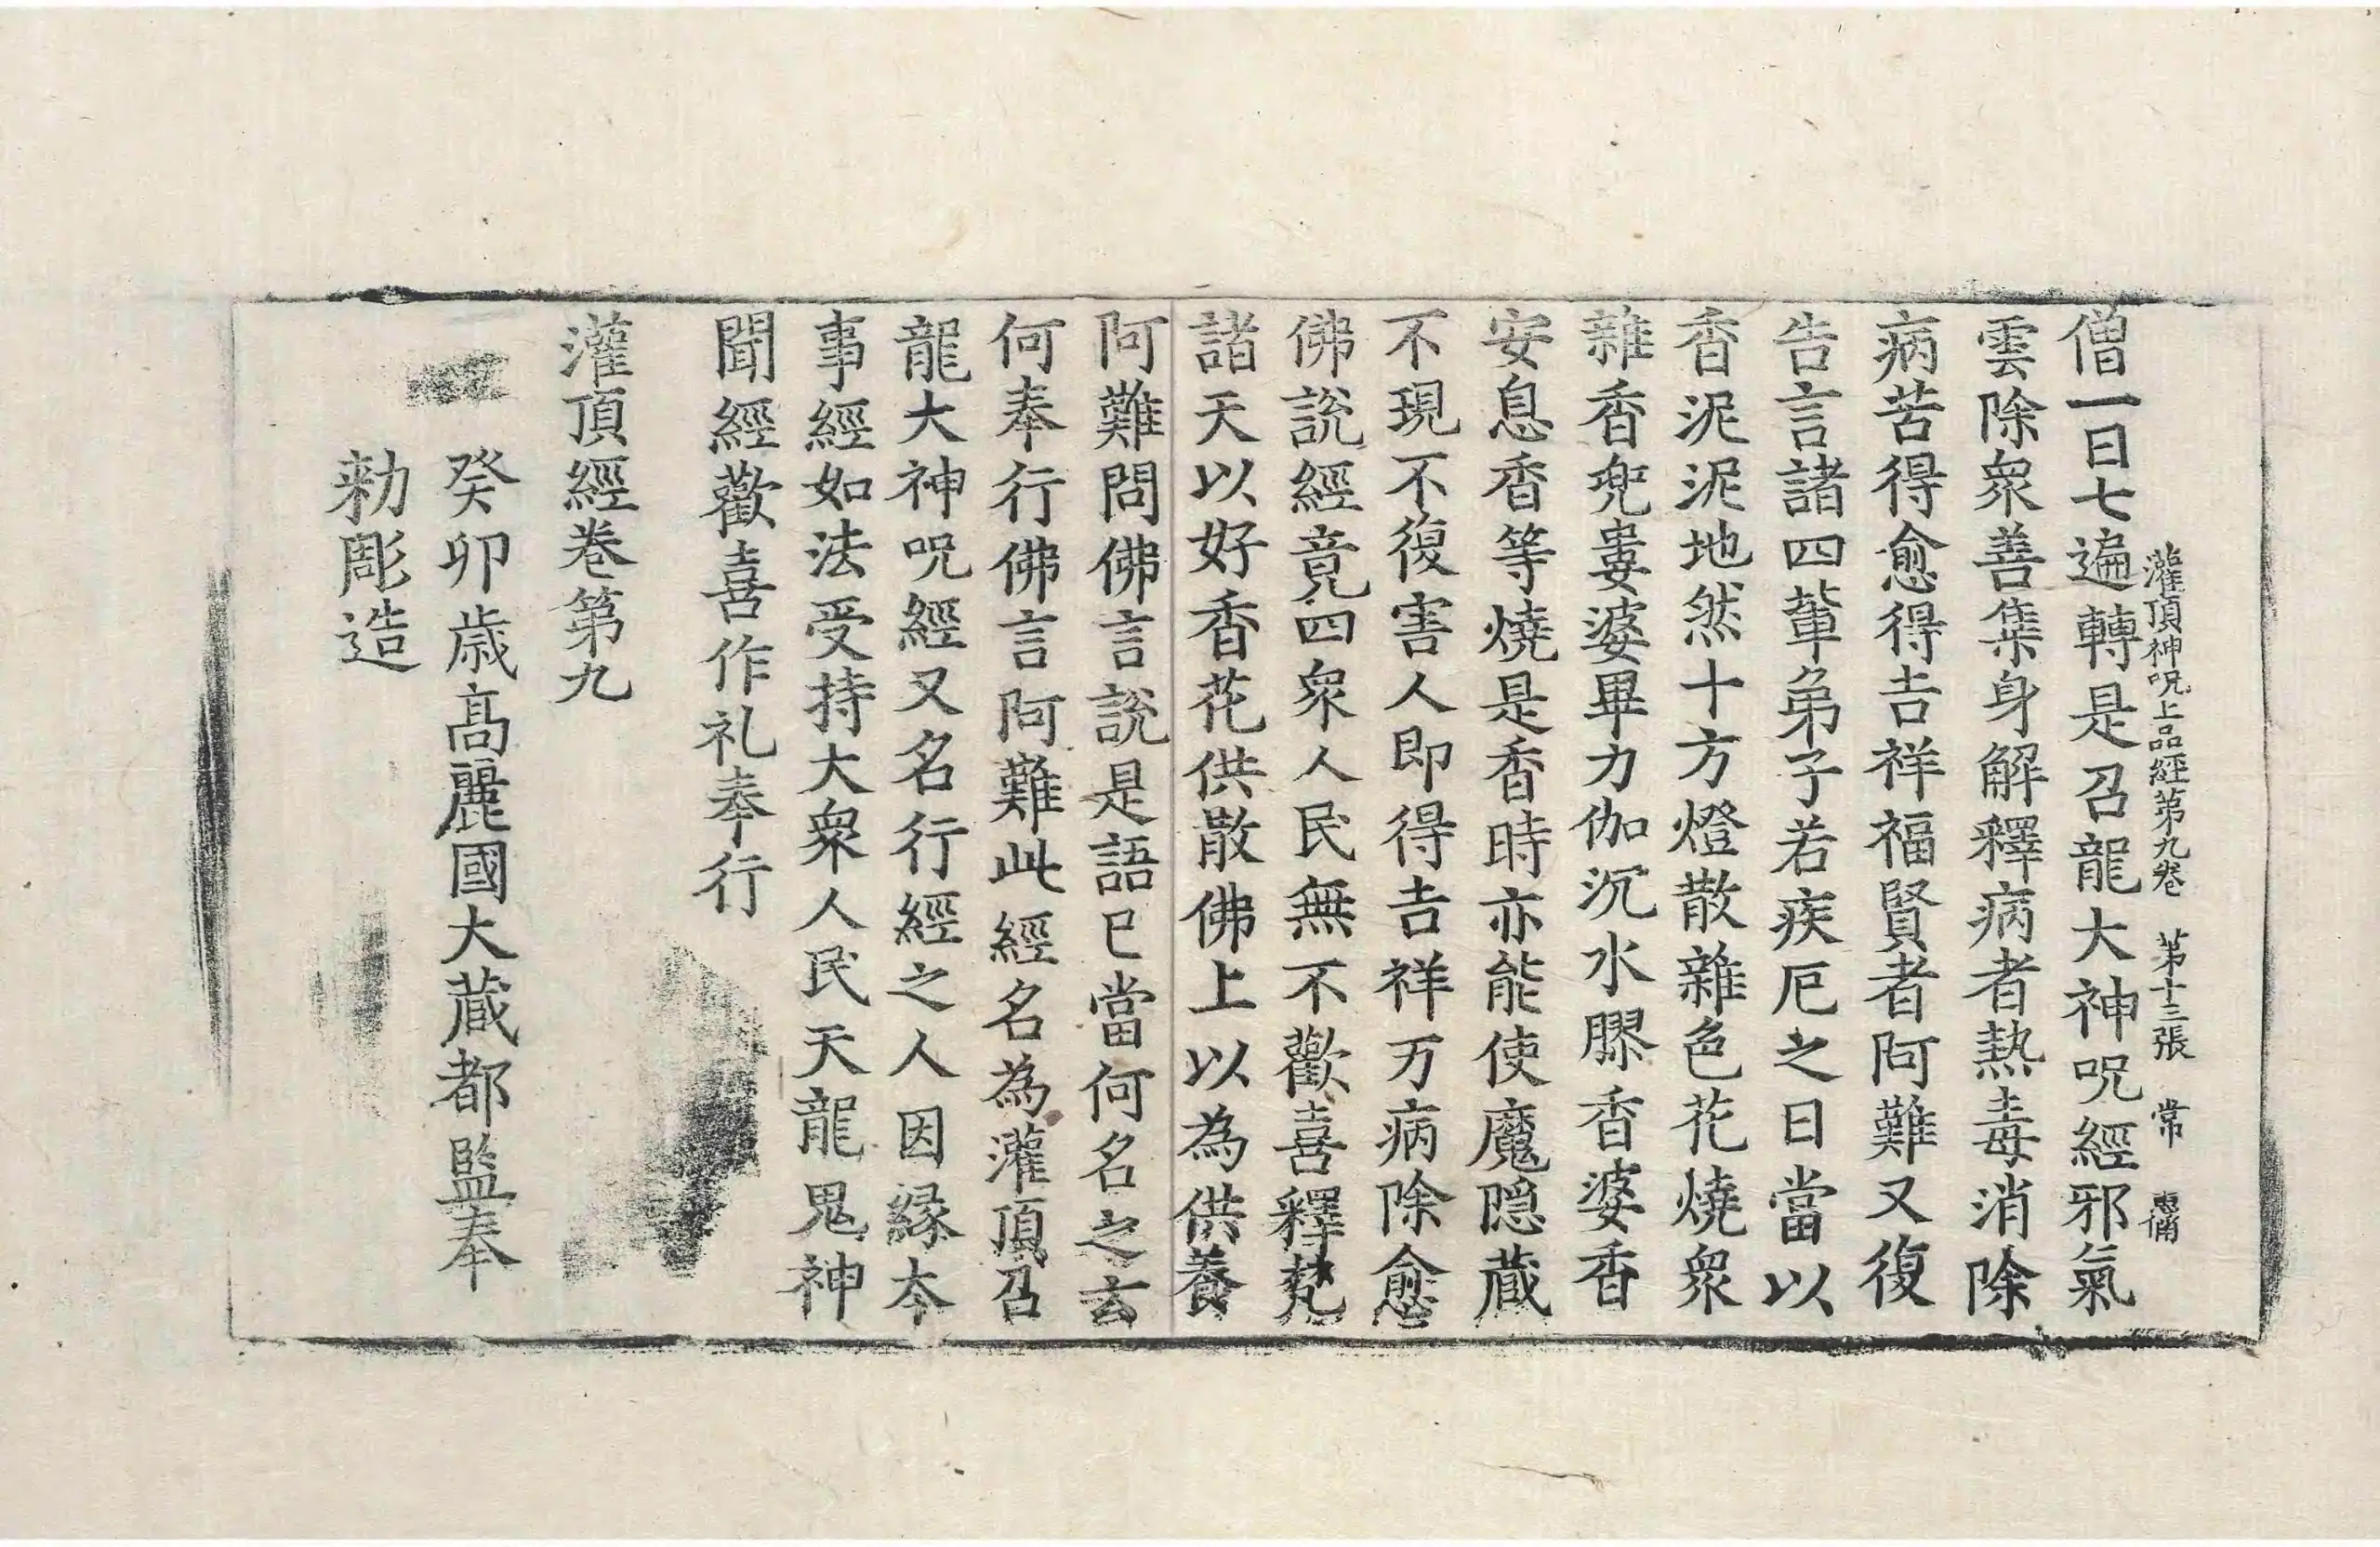 灌頂神呪上品經第九卷　第十三張　常　惠備
僧一日七遍轉是召龍大神呪經邪氣
雲除衆善集身解釋病者熱毒消除
病苦得愈得吉祥福賢者阿難又復
告言諸四輩弟子若疾厄之日當以
香泥泥地然十方燈散雜色花燒衆
雜香兜婁婆畢力伽沉水膠香婆香
安息香等燒是香時亦能使魔隠蔵
不現不復害人即得吉祥万病除愈
佛說經竟四衆人民無不歡喜釋梵
諸天以好香花供散佛上以為供養
阿難問佛言說是語已當何名之云
何奉行佛言阿難此經名為灌頂召
龍大神呪經又名行經之人因縁夲
事經如法受持大衆人民天龍鬼神
聞經歡喜作礼奉行
灌頂經卷第九
癸卯歳高麗國大蔵都監奉
勑彫造